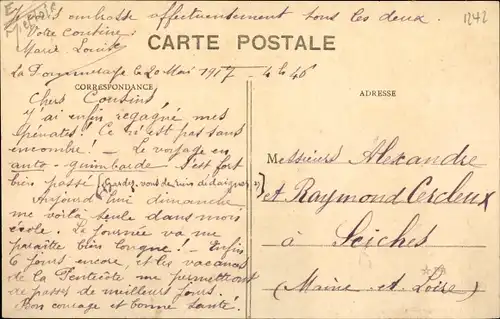 embrasse affectueusement tous les deux.
Votre cousine :
Marie Louise
1242
CARTE POSTALE
La Pommeraye le 20 Mai 1917 - 4 h 46
CORRESPONDANCE
ADRESSE
Chers Cousins,
J'ai enfin regagné mes
pénates ! Ce n'est pas sans
encombre ! - Le voyage en
auto-guimbarde s'est fort
bien passé (Gardez-vous de rien dédaigner !)
Aujourd'hui dimanche,
me voilà seule dans mon
école. La journée va me
paraître bien longue ! - Enfin
6 jours encore, et les vacances
de la Pentecôte me permettront
de passer de meilleurs jours.
Bon courage et bonne santé.
Messieurs Alexandre
et Raymond Cercleux
à Seiches
(Maine-et-Loire)